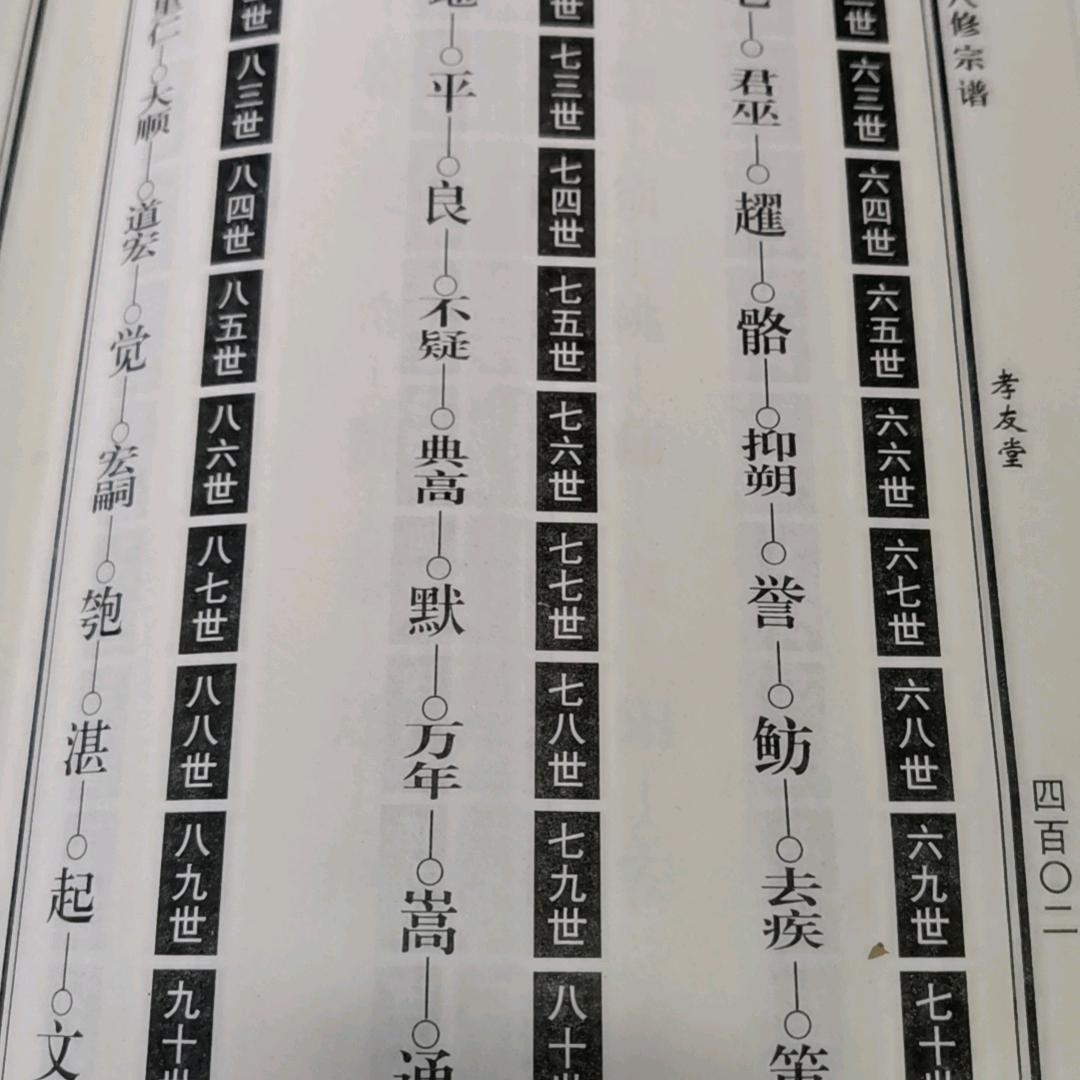 修宗谱
孝友堂
四百〇二
世 六三世 六四世 六五世 六六世 六七世 六八世 六九世 七十
君巫 趯 骼 抑朔 誉 鲂 去疾
世 七三世 七四世 七五世 七六世 七七世 七八世 七九世 八十
平 良 不疑 典高 默 万年 嵩 通
世 八三世 八四世 八五世 八六世 八七世 八八世 八九世 九十世
仁 大顺 道宏 觉 宏嗣 匏 湛 起 文